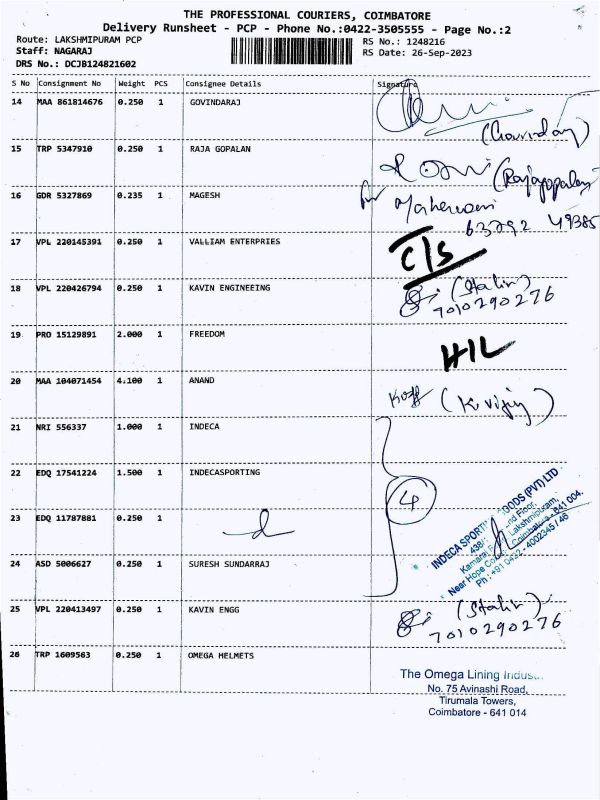 THE PROFESSIONAL COURIERS, COIMBATORE
Delivery Runsheet - PCP - Phone No.:0422-3505555 - Page No.:2
Route: LAKSHMIPURAM PCP
RS No.: 1248216
Staff: NAGARAJ
RS Date: 26-Sep-2023
DRS No.: DCJB124821602
S No Consignment No Weight PCS Consignee Details Signature
14 MAA 861814676 0.250 1 GOVINDARAJ
(Govindaraj)
15 TRP 5347910 0.250 1 RAJA GOPALAN
(Rajagopalan)
16 GDR 5327869 0.235 1 MAGESH
Maheswari
63792 49385
17 VPL 220145391 0.250 1 VALLIAM ENTERPRIES
C/S
18 VPL 220426794 0.250 1 KAVIN ENGINEEING
(Stalin)
7010290276
19 PRO 15129891 2.000 1 FREEDOM
H/L
20 MAA 104071454 4.100 1 ANAND
21 NRI 556337 1.000 1 INDECA
22 EDQ 17541224 1.500 1 INDECASPORTING
4
23 EDQ 11787881 0.250 1
24 ASD 5006627 0.250 1 SURESH SUNDARRAJ
INDECA SPORTI GOODS (PVT) LTD
438/ nd Floor,
Kamaraj Lakshmipuram,
Near Hope Co Coimbatore-641 004.
Ph : +91 0422 - 4002345 / 46
25 VPL 220413497 0.250 1 KAVIN ENGG
(Stalin)
7010290276
26 TRP 1609563 0.250 1 OMEGA HELMETS
The Omega Lining Indust
No. 75 Avinashi Road,
Tirumala Towers,
Coimbatore - 641 014